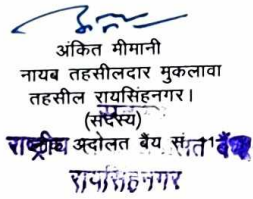 अंकित मीमानी
नायब तहसीलदार मुकलावा
तहसील रायसिंहनगर।
(सदस्य)
राष्ट्रीय लोक अदालत बैंच सं. 11
रायसिंहनगर